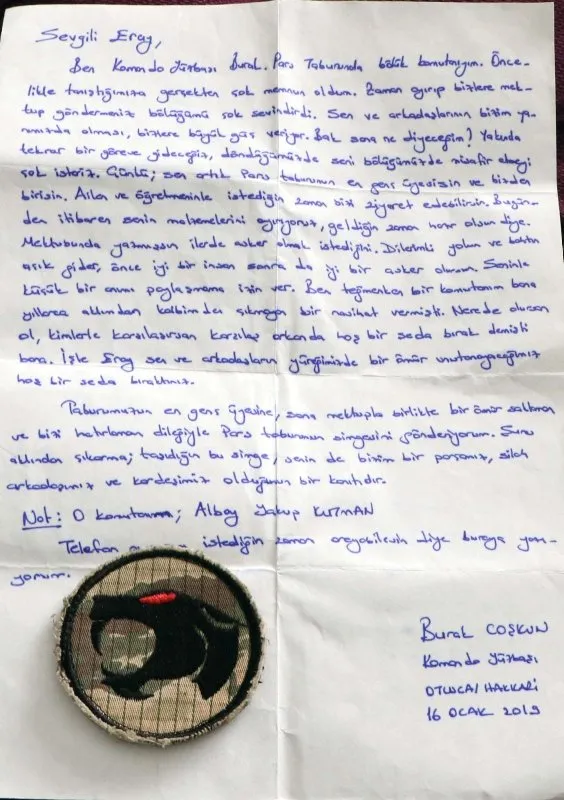 Sevgili Eray,
Ben Komando Yüzbaşı Burak. Pars Taburunda bölük komutanıyım. Önce-
likle tanıştığımıza gerçekten çok memnun oldum. Zaman ayırıp bizlere mek-
tup göndermeniz bölüğümü çok sevindirdi. Sen ve arkadaşlarının bizim ya-
nımızda olması, bizlere büyük güç veriyor. Bak sana ne diyeceğim? Yakında
tekrar bir göreve gideceğiz, döndüğümüzde seni bölüğümüzde misafir etmeyi
çok isteriz. Çünkü; sen artık Pars taburunun en genç üyesisin ve bizden
birisin. Ailen ve öğretmeninle istediğin zaman bizi ziyaret edebilirsin. Bugün-
den itibaren senin malzemelerini ayırıyoruz, geldiğin zaman hazır olsun diye.
Mektubunda yazmışsın ilerde asker olmak istediğini. Dilerim ki yolun ve bahtın
açık gider, önce iyi bir insan sonra da iyi bir asker olursun. Seninle
küçük bir anımı paylaşmama izin ver. Ben teğmenken bir komutanım bana
yıllarca aklımdan kalbimden çıkmayan bir nasihat vermişti. Nerede olursan
ol, kimlerle karşılaşırsan karşılaş arkanda hoş bir seda bırak demişti
bana. İşte Eray sen ve arkadaşların yüreğimizde bir ömür unutamayacağımız
hoş bir seda bıraktınız.
Taburumuzun en genç üyesine, sana mektupla birlikte bir ömür saklaman
ve bizi hatırlaman dileğiyle Pars taburunun simgesini gönderiyorum. Şunu
aklından çıkarma; taşıdığın bu simge, senin de bizim bir parçamız, silah
arkadaşımız ve kardeşimiz olduğunun bir kanıtıdır.
Not: O komutanım; Albay Yakup KUTMAN
Telefon istediğin zaman arayabilesin diye buraya yazı-
yorum.
Burak COŞKUN
Komando Yüzbaşı
OTLUCA/HAKKARİ
16 OCAK 2019